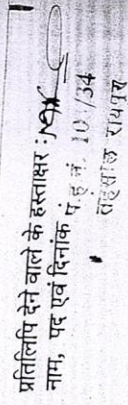 प्रतिलिपि देने वाले के हस्ताक्षर :
नाम, पद एवं दिनांक प.ह.नं. 10 /34
रायपुर